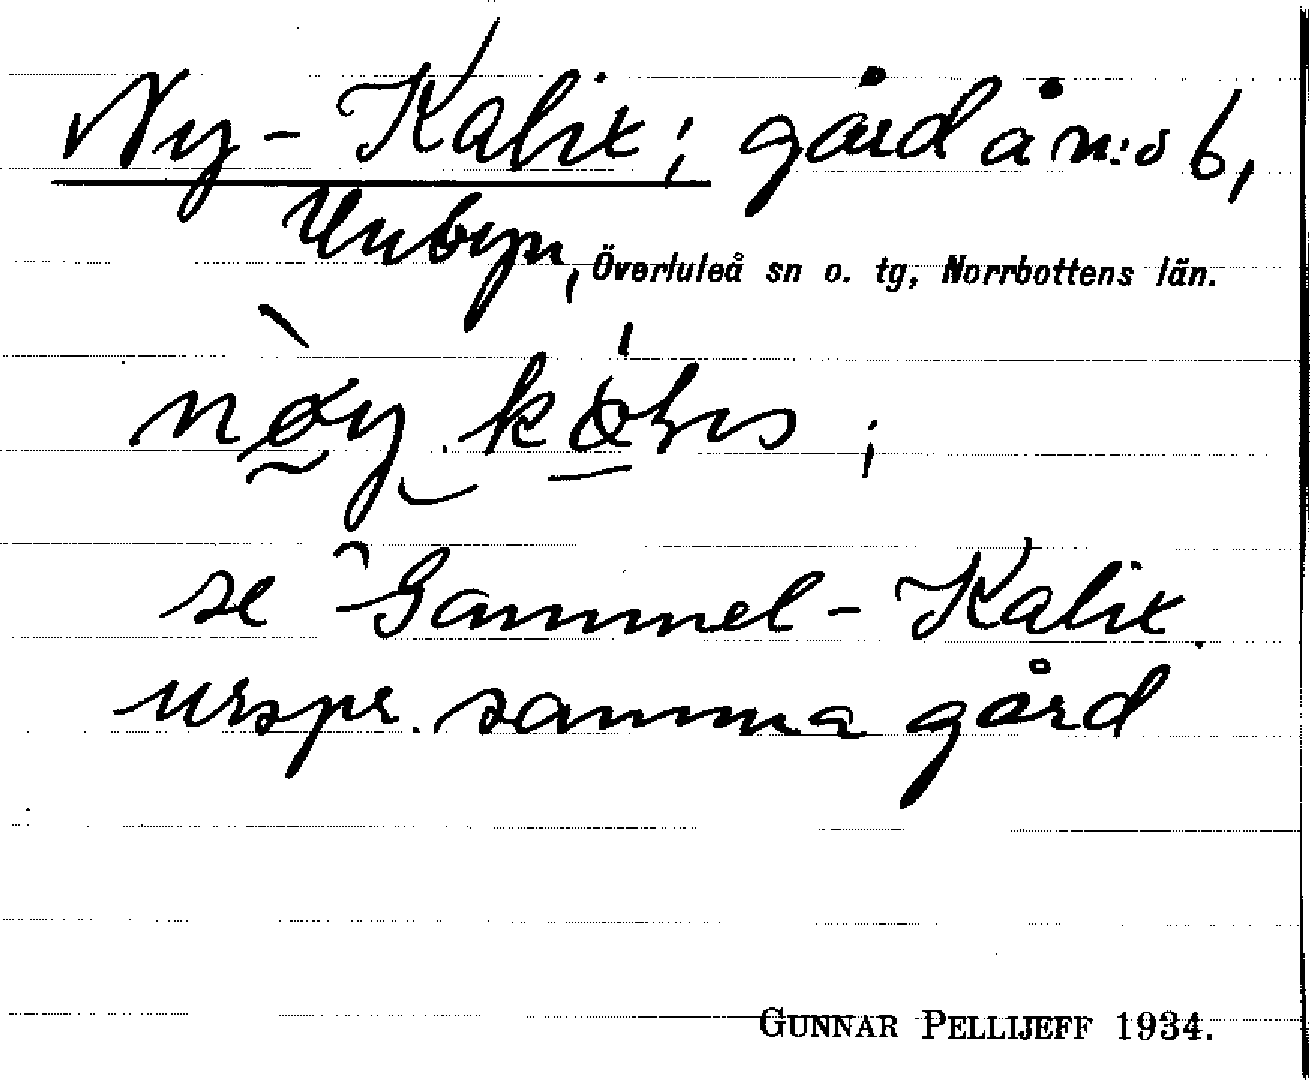 Ny-Kalix; gård å n:o 6,
Unbyn, Överluleå sn o. tg, Norrbottens län.
se Gammel-Kalix.
urspr. samma gård
GUNNAR PELLIJEFF 1934.